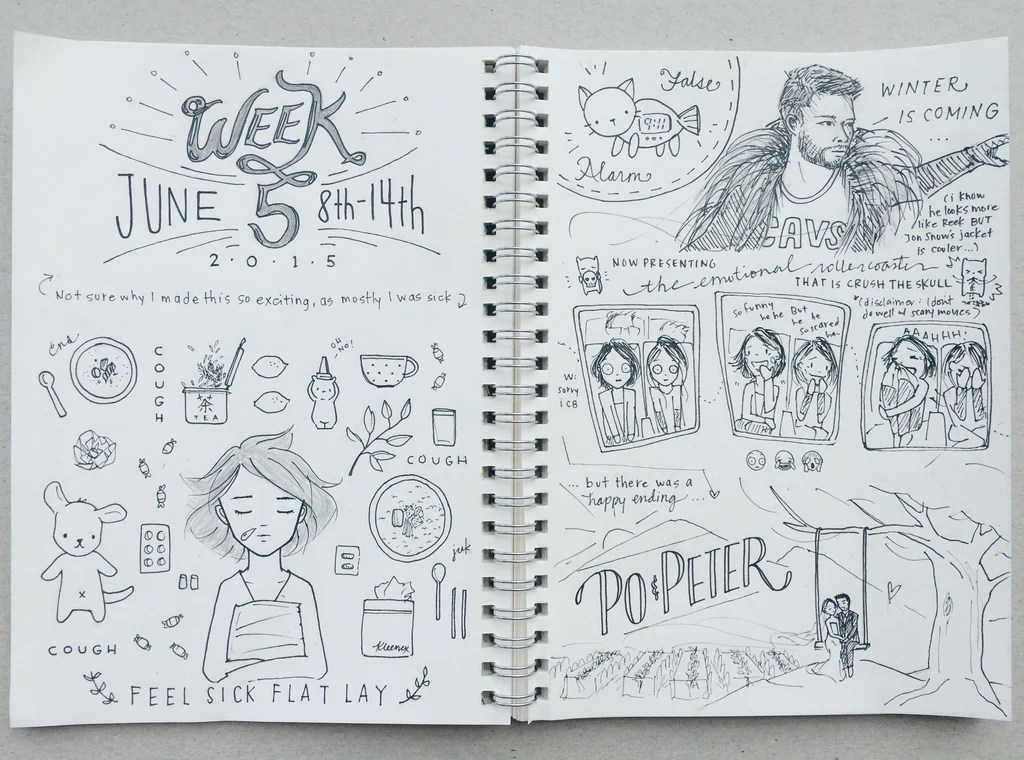 WEEK
5
JUNE 8th-14th
2.0.1.5
Not sure why I made this so exciting, as mostly I was sick
COUGH
OH NO!
茶
TEA
COUGH
juk
Kleenex
COUGH
FEEL SICK FLAT LAY
False
9:11
Alarm
WINTER
IS COMING
...
CAVS
(i know
he looks more
like Reek BUT
Jon Snow's jacket
is cooler...)
NOW PRESENTING
the emotional rollercoaster
THAT IS CRUSH THE SKULL
*(disclaimer: I don't
do well w/ scary movies)
sorry
so funny
he he But
he he
so scared
ha
AAAHHH!
... but there was a
happy ending ...
PO & PETER